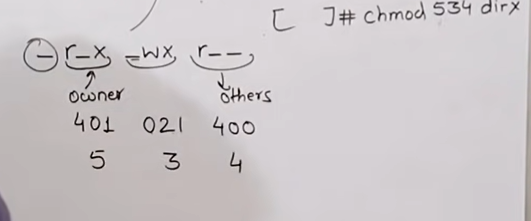 [ ]# chmod 534 dirx
- r-x -wx r--
owner others
401 021 400
5 3 4